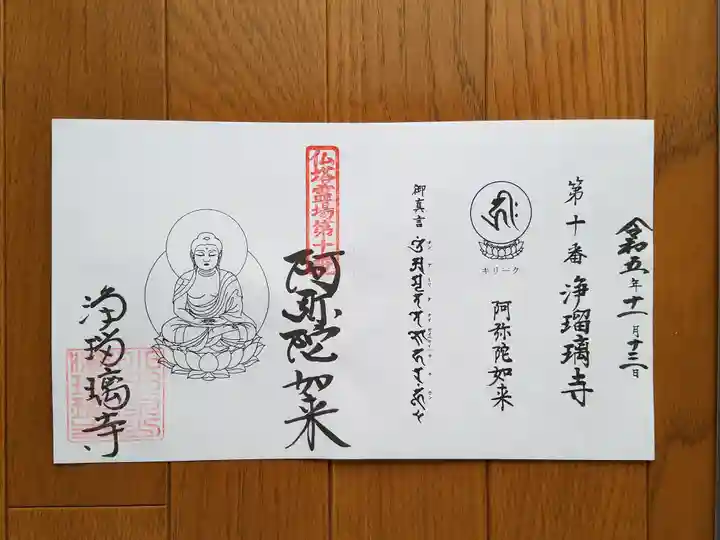 令和五年十一月十三日
第十番 浄瑠璃寺
キリーク
阿弥陀如来
御真言
仏塔霊場第十番
阿弥陀如来
浄瑠璃寺